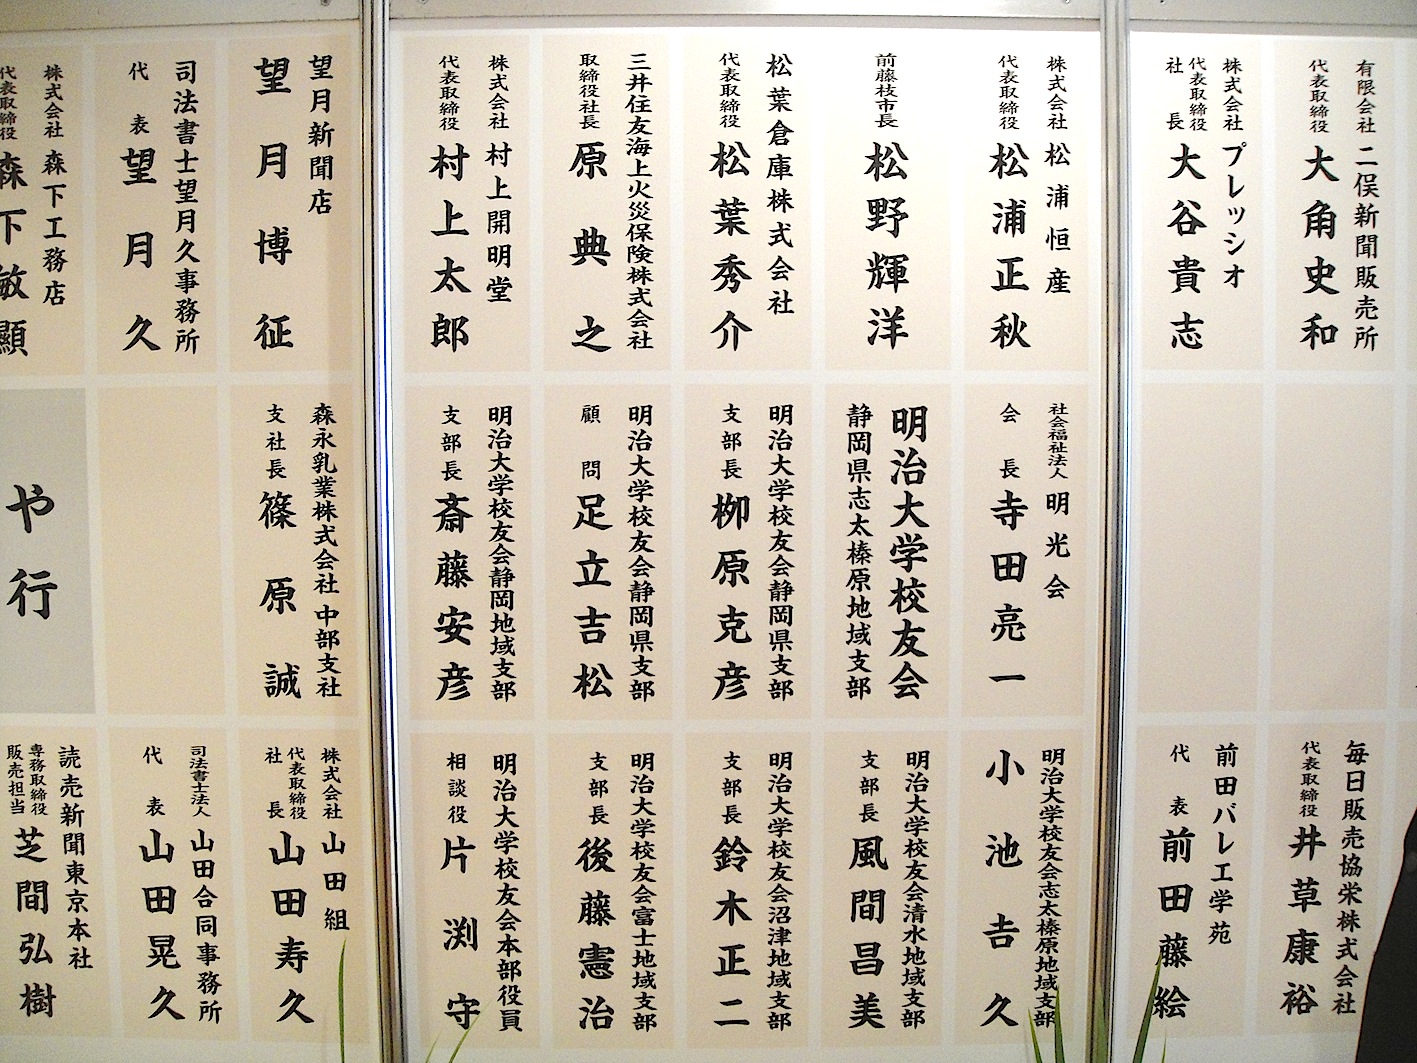 有限会社 二俣新聞販売所
代表取締役 大角史和
株式会社 プレッシオ
代表取締役社長 大谷貴志
株式会社 松浦恒産
代表取締役 松浦正秋
前藤枝市長
松野輝洋
松葉倉庫株式会社
代表取締役 松葉秀介
三井住友海上火災保険株式会社
取締役社長 原典之
株式会社 村上開明堂
代表取締役 村上太郎
望月新聞店
望月博征
司法書士望月久事務所
代表 望月久
株式会社 森下工務店
代表取締役 森下敏顯
社会福祉法人 明光会
会長 寺田亮一
明治大学校友会
静岡県志太榛原地域支部
明治大学校友会静岡県支部
支部長 栁原克彦
明治大学校友会静岡県支部
顧問 足立吉松
明治大学校友会静岡地域支部
支部長 斎藤安彦
森永乳業株式会社 中部支社
支社長 篠原誠
や行
毎日販売協栄株式会社
代表取締役 井草康裕
前田バレエ学苑
代表 前田藤絵
明治大学校友会志太榛原地域支部
小池吉久
明治大学校友会清水地域支部
支部長 風間昌美
明治大学校友会沼津地域支部
支部長 鈴木正二
明治大学校友会富士地域支部
支部長 後藤憲治
明治大学校友会本部役員
相談役 片渕守
株式会社 山田組
代表取締役社長 山田寿久
司法書士法人 山田合同事務所
代表 山田晃久
読売新聞東京本社
専務取締役販売担当 芝間弘樹